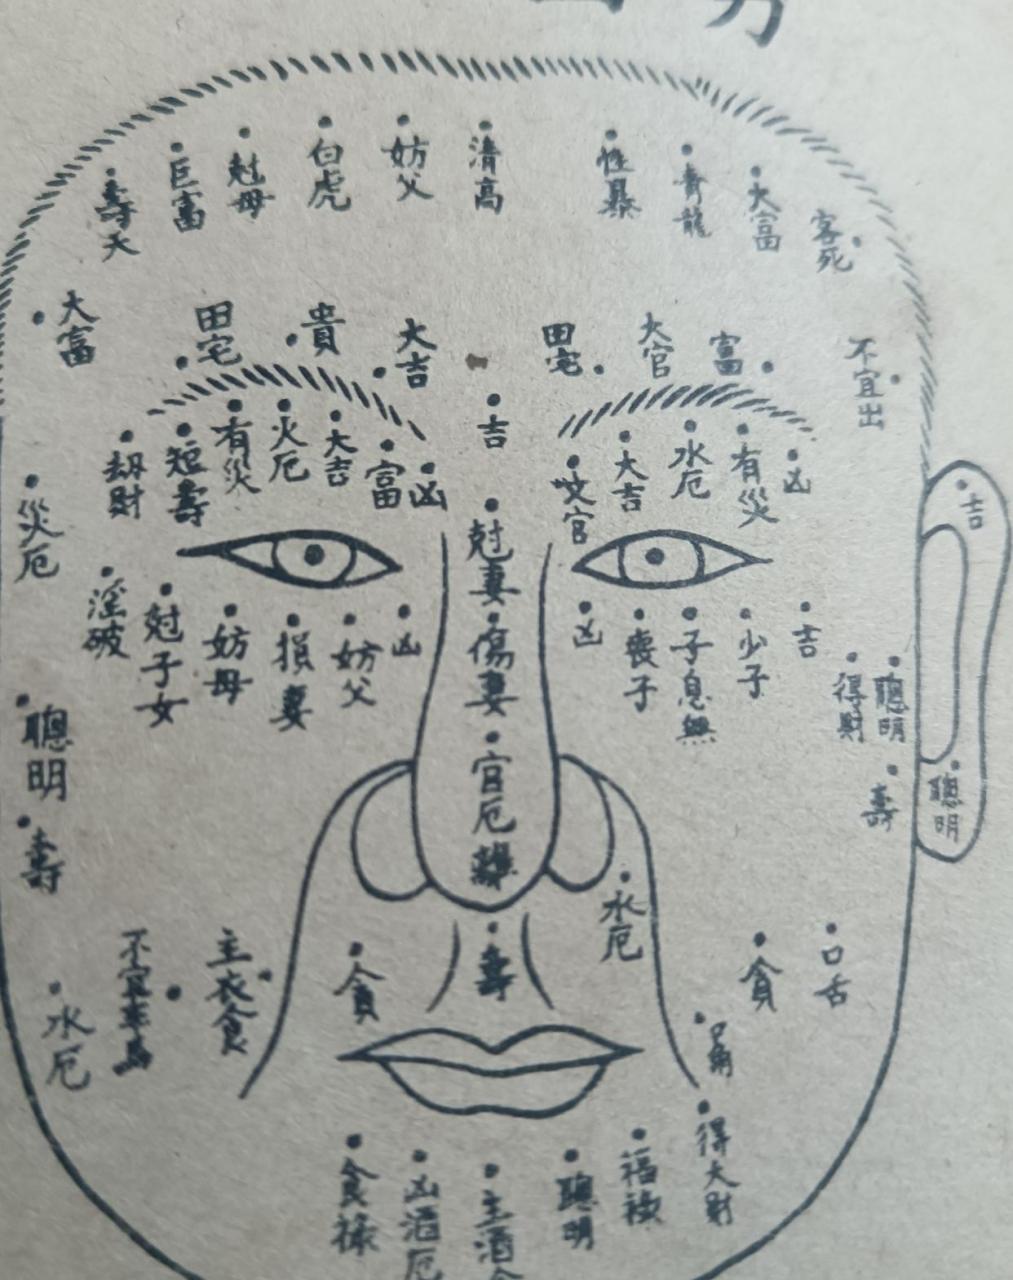 壽夭
巨富
尅母
白虎
妨父
清高
性暴
青龍
大富
客死
大富
田宅
貴
大吉
田宅
大官
富
不宜出
吉
劫財
短壽
有災
火厄
大吉
富
凶
大吉
水厄
有災
凶
吉
災厄
尅妻
淫破
尅子女
妨母
損妻
妨父
凶
傷妻
凶
喪子
子息無
少子
吉
得財
聰明
聰明
官厄
壽
聰明
壽
水厄
主衣食
貪
壽
水厄
貪
口舌
口角
得大財
食祿
凶酒厄
主酒
聰明
福祿